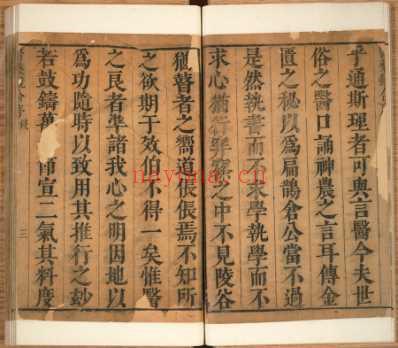 乎通斯理者可與言醫今夫世
俗之醫口誦神農之言耳傳金
匱之秘以爲扁鵲倉公當不過
是然執書而不求學執學而不
求心猶行之中不見陵谷
獲瞽者之嚮道倀倀焉不知所
之欲期于效伯不得一矣惟醫
之良者準諸我心之明因地以
爲功隨時以致用其推行之玅
若鼓鑄萬師宣二氣其料度
三